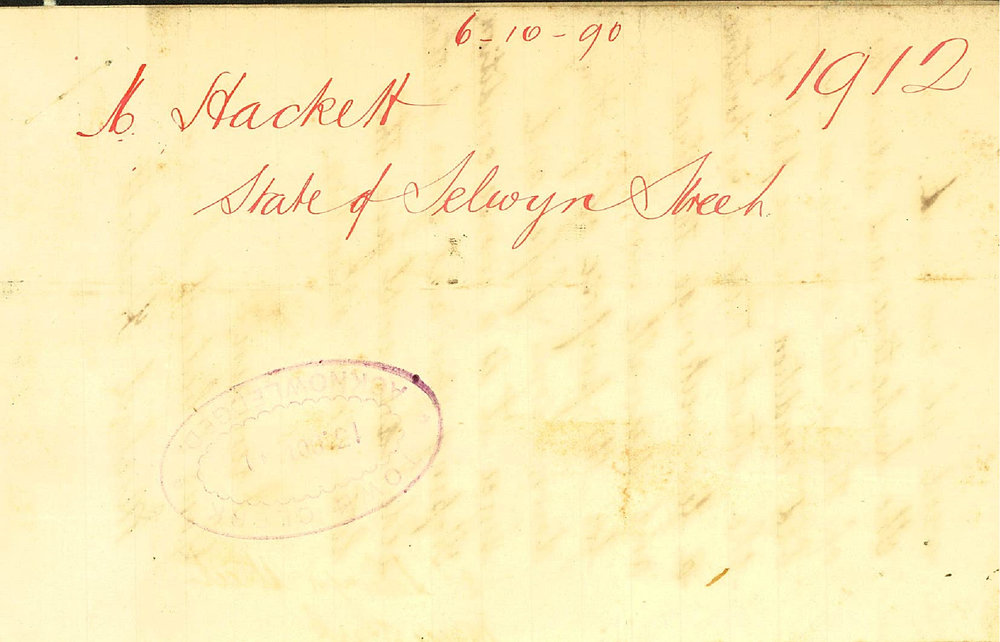 6-10-90
1912
Hackett
State of Selwyn Street.
ACKNOWLEDGED
TOWN CLERK